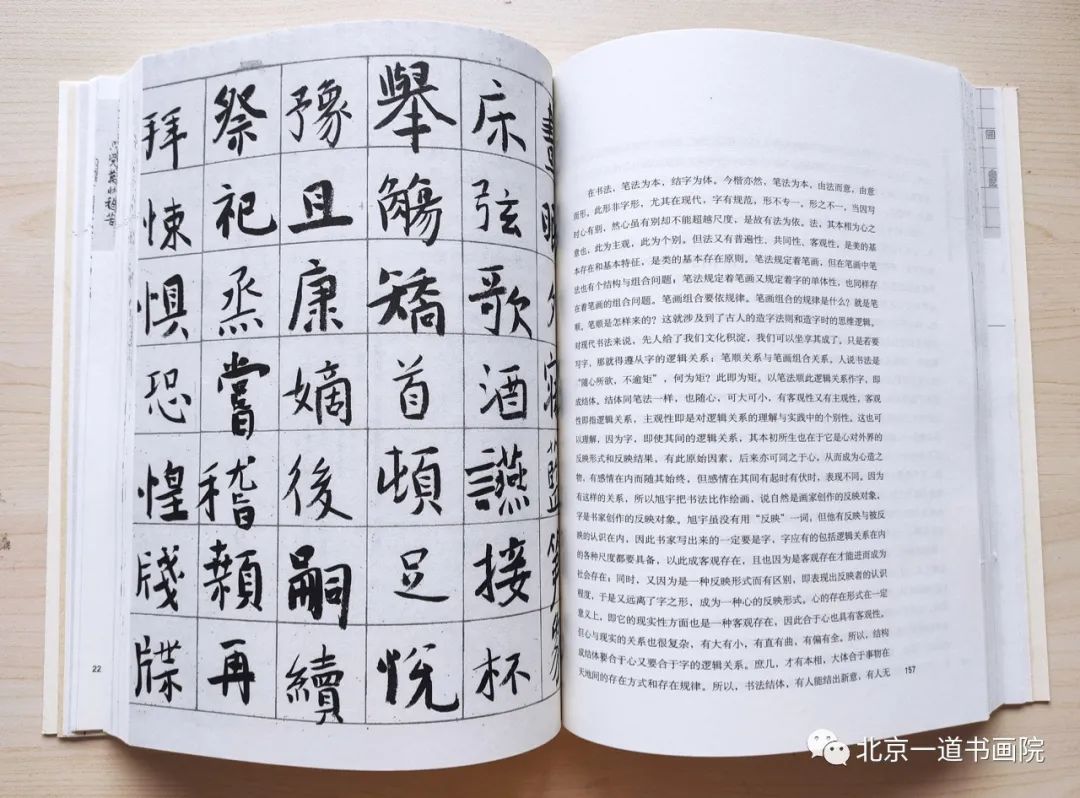 床弦歌酒讌接杯
舉觴矯首頓足悅
豫且康嫡後嗣續
祭祀烝嘗稽顙再
拜悚懼恐惶牋牒
22
在书法，笔法为本，结字为体。今楷亦然，笔法为本，由法而意，由意
而形，此形非字形，尤其在现代，字有规范，形不专一，形之不一，当因写
时心有别，然心虽有别却不能超越尺度，是故有法为依。法，其本相为心之
意也，此为主观，此为个别。但法又有普遍性、共同性、客观性，是美的基
本存在和基本特征，是类的基本存在原则。笔法规定着笔画，但在笔画中笔
法也有个结构与组合问题；笔法规定着笔画又规定着字的单体性，也同样存
在着笔画的组合问题。笔画组合要依规律。笔画组合的规律是什么？就是笔
顺，笔顺是怎样来的？这就涉及到了古人的造字法则和造字时的思维逻辑。
对现代书法来说，先人给了我们文化积淀，我们可以坐享其成了，只是若要
写字，那就得遵从字的逻辑关系；笔顺关系与笔画组合关系，人说书法是
“随心所欲，不逾矩”，何为矩？此即为矩。以笔法顺此逻辑关系作字，即
成结体，结体同笔法一样，也随心，可大可小，有客观性又有主观性，客观
性即指逻辑关系，主观性即是对逻辑关系的理解与实践中的个别性。这也可
以理解，因为字，即使其间的逻辑关系，其本初所生也在于它是心对外界的
反映形式和反映结果，有此原始因素，后来亦可同之于心，从而成为心造之
物，有感情在内而随其始终，但感情在其间有起时有伏时，表现不同。因为
有这样的关系，所以旭宇把书法比作绘画，说自然是画家创作的反映对象，
字是书家创作的反映对象。旭宇虽没有用“反映”一词，但他有反映与被反
映的认识在内，因此书家写出来的一定要是字，字应有的包括逻辑关系在内
的各种尺度都要具备，以此成客观存在，且也因为是客观存在才能进而成为
社会存在；同时，又因为是一种反映形式而有区别，即表现出反映者的认识
程度，于是又远离了字之形，成为一种心的反映形式。心的存在形式在一定
意义上，即它的现实性方面也是一种客观存在，因此合于心也具有客观性，
但心与现实的关系也很复杂，有大有小，有直有曲，有偏有全。所以，结构
成结体要合于心又要合于字的逻辑关系。庶几，才有本相，大体合于事物在
天地间的存在方式和存在规律。所以，书法结体，有人能结出新意，有人无
157
北京一道书画院